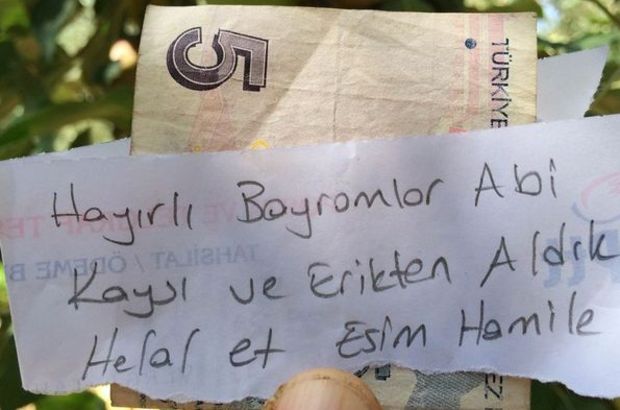 5
TÜRKİYE
Hayırlı Bayramlar Abi
Kaysı ve Erikten Aldık
Helal et Esim Hamile
TAHSİLAT / ÖDEME B